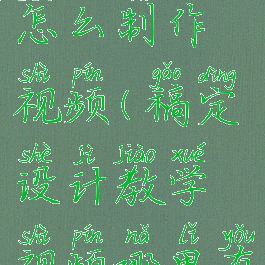 怎么制作
shì pín gǎo dìng
视频(稿定
shè jì jiào xué
设计教学
shì pín nǎ lǐ yǒu
视频哪里有